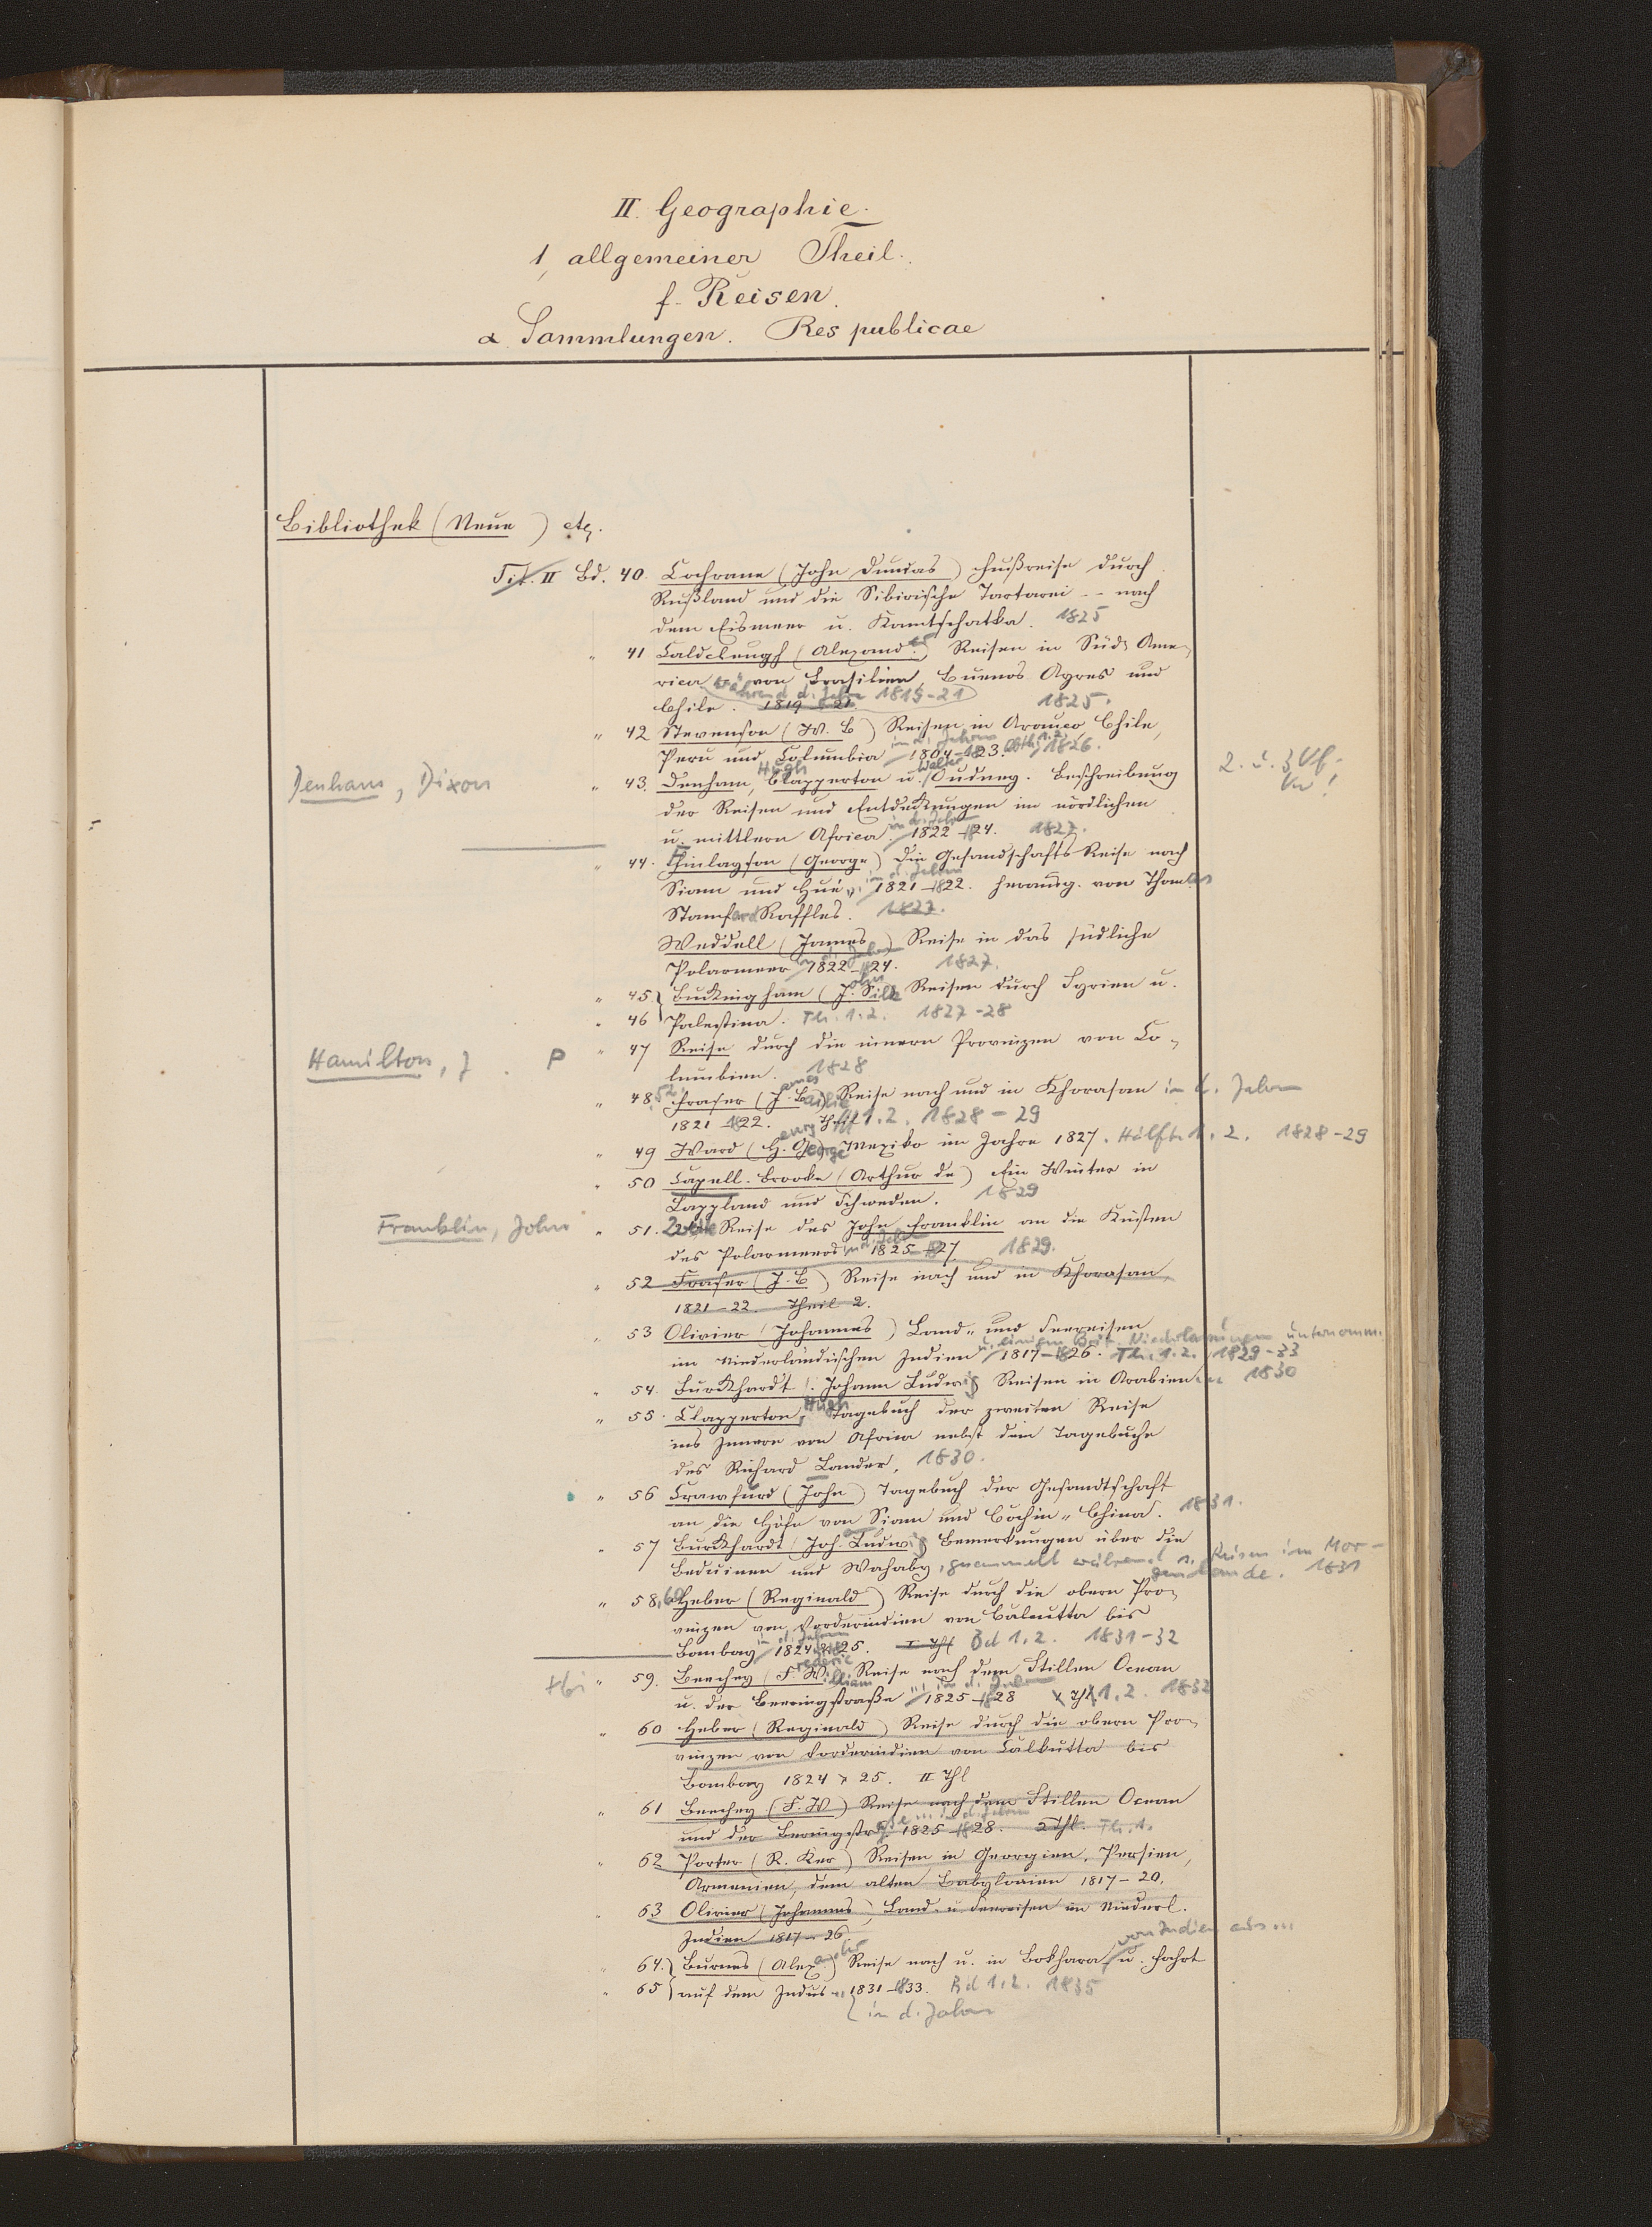 II. Geographie.
1, allgemeiner Theil.
f. Reisen.
α. Sammlungen. Res publicae
Bibliothek (Neue) etc.
Tit. II Bd. 40. Cochrane (John Dundas) Fußreise durch
Rußland und die Sibirische Tartarei -- nach
dem Eismeer u. Kamtschatka. 1825
" 41 Caldcleugh (Alexander) Reisen in Süd-Ame-
rica während d. Jahre 1819-21 von Brasilien, Buenos Ayres und
Chile. 1819-21. 1825.
" 42 Stevenson (W. B) Reisen in Arauco, Chile,
Peru und Columbia in d. Jahren 1804-1823. Abth. 1.2. 1826.
Denham, Dixon " 43. Denham, Hugh Clapperton u. Walter Oudney. Beschreibung 2. u. 3. Vf.
der Reisen und Entdeckungen im nördlichen
u. mittlern Africa. in d. Jahren 1822-1824. 1827.
" 44. Finlayson (George) Die Gesandschafts Reise nach
Siam und Hué in d. Jahren 1821-1822. herausg. von Thomas
Stamford Raffles. 1827.
Weddell (James) Reise in das südliche
Polarmeer in d. Jahren 1822-1824. 1827.
" 45 Buckingham (John Silk) Reisen durch Syrien u.
" 46 Palestina. Th. 1.2. 1827-28
Hamilton, J. P " 47 Reise durch die innern Provinzen von Co-
lumbien. 1828
" 48.52 Fraser (James Bailie) Reise nach und in Khorasan in d. Jahren
1821-1822. Theil 1.2. 1828-29
" 49 Ward (Henry George) Mexiko im Jahre 1827. Hälfte 1.2. 1828-29
" 50 Capell-Brooke (Arthur de) Ein Winter in
Lappland und Schweden. 1829
Franklin, John " 51. Zweite Reise des John Franklin an die Küsten
des Polarmeeres in d. Jahren 1825-1827. 1829.
" 52 Fraser (J. B) Reise nach und in Khorasan
1821-22. Theil 2.
" 53 Olivier (Johannes) Land- und Seereisen
im Niederländischen Indien 1817-1826. unternomm. Th. 1.2. 1829-33
" 54. Burckhardt (Johann Ludwig) Reisen in Arabien ... 1830
" 55. Clapperton, Hugh Tagebuch der zweiten Reise
ins Innere von Africa nebst dem Tagebuche
des Richard Lander. 1830.
" 56 Crawfurd (John) Tagebuch der Gesandtschaft
an die Höfe von Siam und Cochin-China. 1831.
" 57 Burckhardt (Joh. Ludwig) Bemerkungen über die
Beduinen und Wahaby, gesammelt während s. Reisen im Mor-
genlande. 1831
" 58,60 Heber (Reginald) Reise durch die obern Pro-
vinzen von Vorderindien von Calcutta bis
Bombay in d. Jahren 1824 & 1825. I Thl Bd 1.2. 1831-32
" 59. Beechey (Frederic William) Reise nach dem Stillen Ocean
u. der Beeringstraße ... in d. Jahren 1825-1828 Thl. 1.2. 1832
" 60 Heber (Reginald) Reise durch die obern Pro-
vinzen von Vorderindien von Calkutta bis
Bombay 1824 & 25. II Thl
" 61 Beechey (F. W) Reise nach dem Stillen Ocean
und der Beringstraße ... in d. Jahren 1825-1828. 2 Thl. Th. 1.
" 62 Porter (R. Ker) Reisen in Georgien, Persien,
Armenien, dem alten Babylonien 1817-20.
" 63 Olivier (Johannes) Land- u Seereisen im Niederl.
Indien 1817-26.
von Indien aus ...
" 64. Burnes (Alexander) Reise nach u. in Bokhara, u. Fahrt
" 65 auf dem Indus ... 1831-1833. Bd 1.2. 1835
in d. Jahren